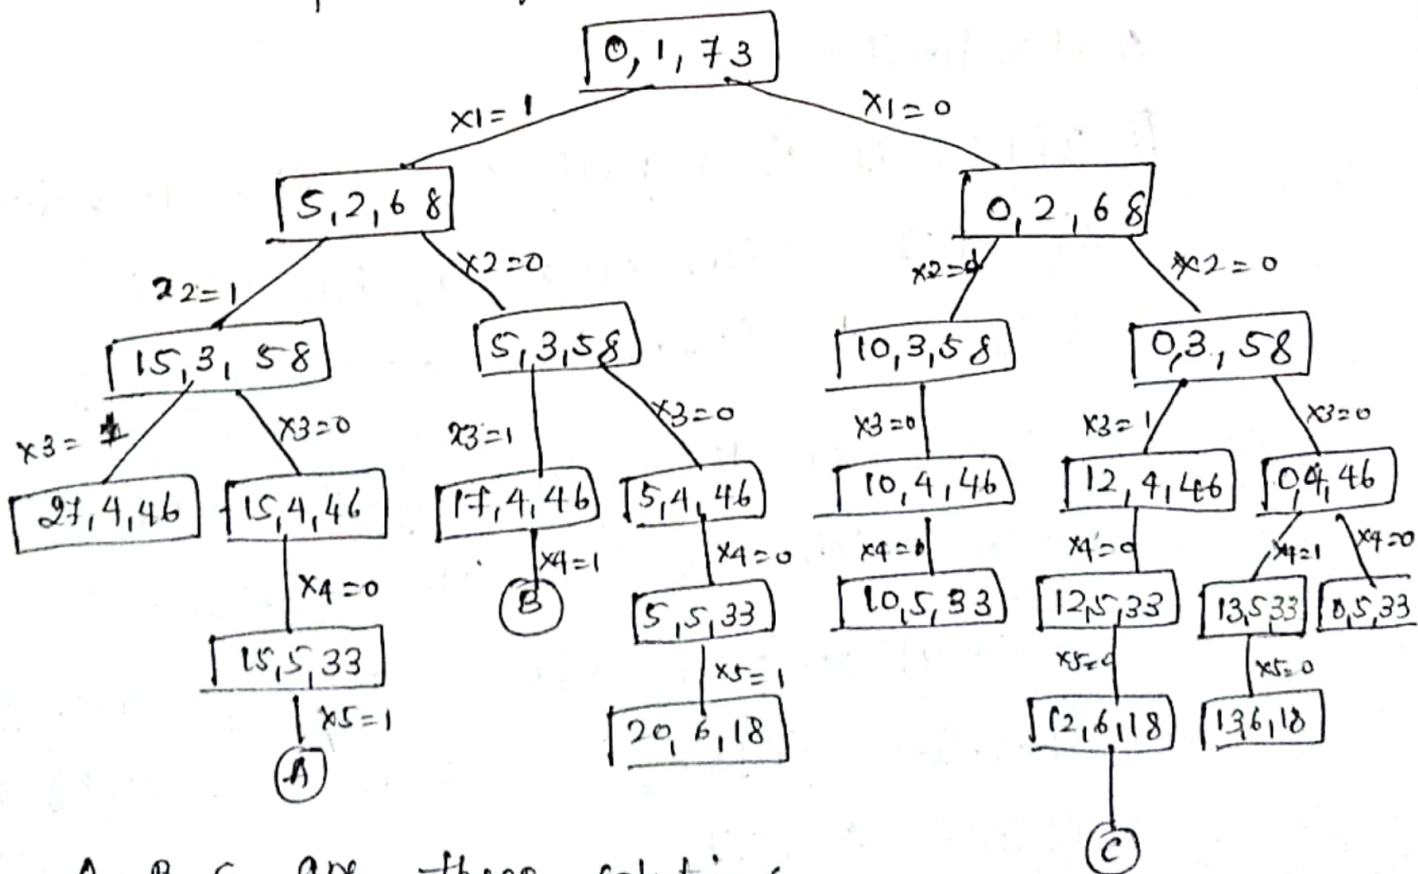 0, 1, 73
x1 = 1
x1 = 0
5, 2, 68
0, 2, 68
x2 = 1
x2 = 0
x2 = 1
x2 = 0
15, 3, 58
5, 3, 58
10, 3, 58
0, 3, 58
x3 = 1
x3 = 0
x3 = 1
x3 = 0
x3 = 0
x3 = 1
x3 = 0
27, 4, 46
15, 4, 46
17, 4, 46
5, 4, 46
10, 4, 46
12, 4, 46
0, 4, 46
x4 = 0
x4 = 1
x4 = 0
x4 = 0
x4 = 0
x4 = 1
x4 = 0
B
15, 5, 33
5, 5, 33
10, 5, 33
12, 5, 33
13, 5, 33
0, 5, 33
x5 = 1
x5 = 1
x5 = 0
x5 = 0
A
20, 6, 18
12, 6, 18
13, 6, 18
C
A B C are